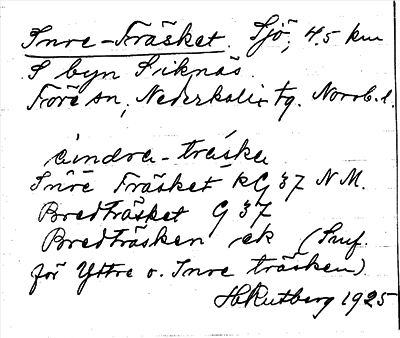 Inre-Träsket. Sjö, 4.5 km
S byn Siknäs.
Töre sn, Nederkalix tg. Norrb. l.
ı̇̀ndra-tráska
Inre Träsket kG 37 N M.
Bredträsket G 37
Bredträsken ek (Smf.
för Yttre o. Inre träsken)
H Rutberg 1925